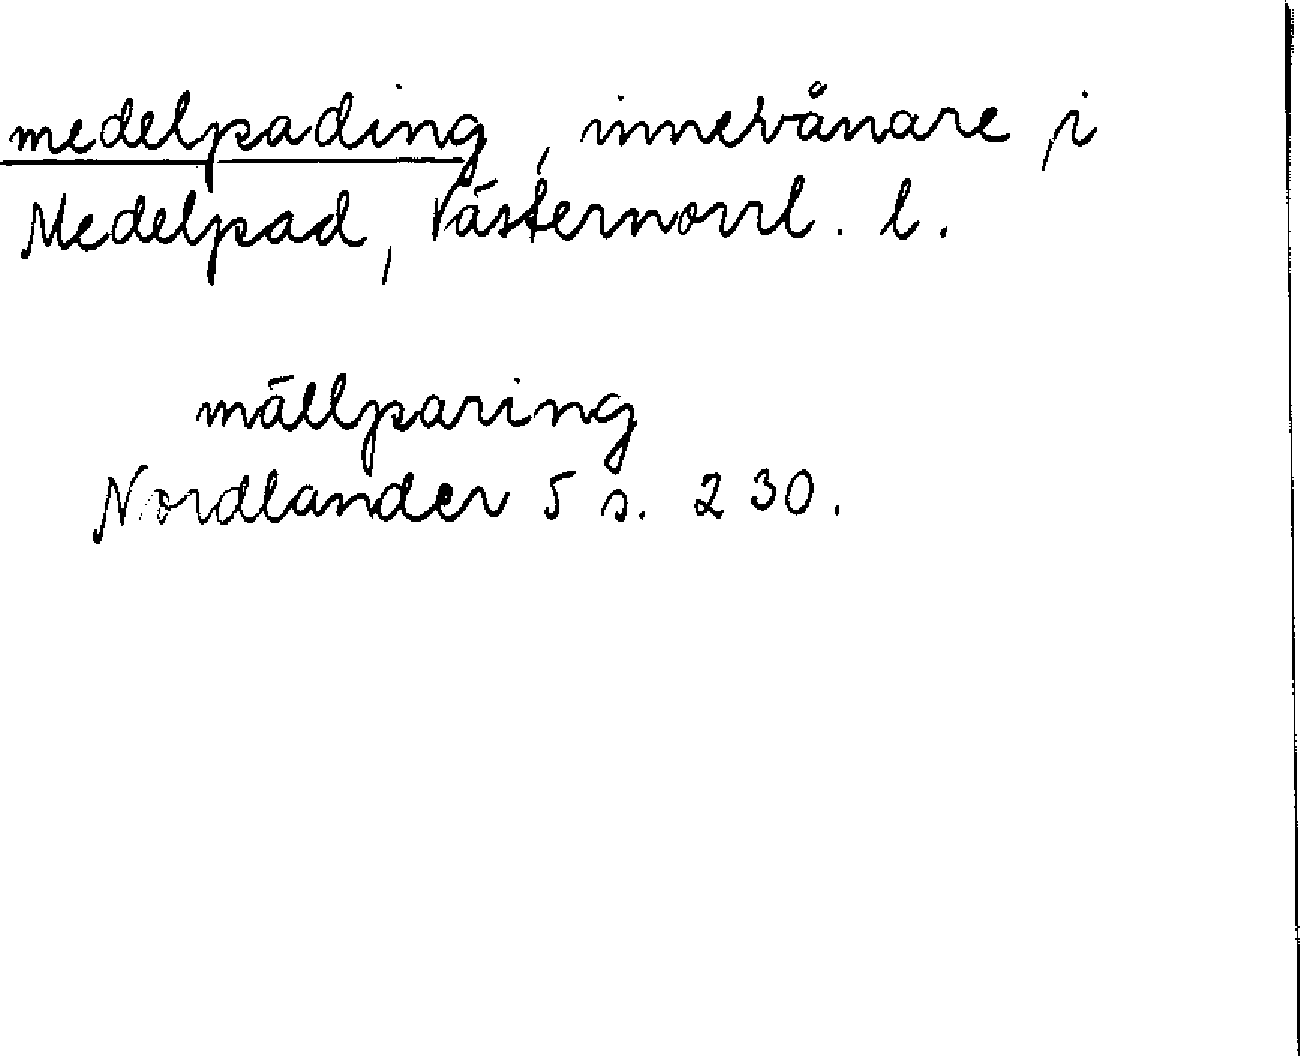 medelpading, innevånare i
Medelpad, Västernorrl. l.
mällparing
Nordlander 5 s. 230.